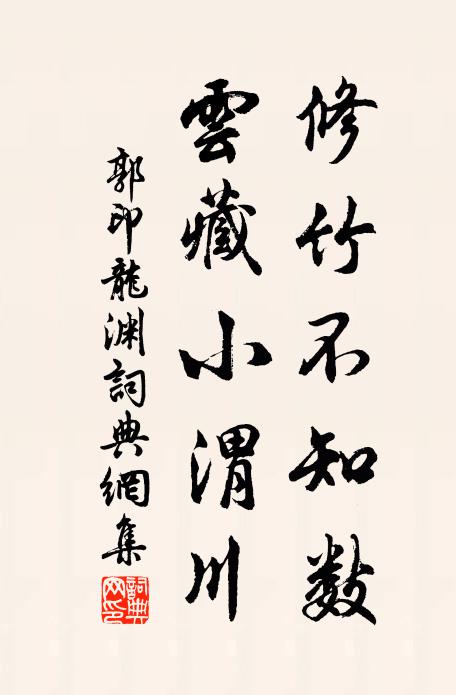 修竹不知数
雲藏小渭川
郭印龍渊詞典網集
詞典网印